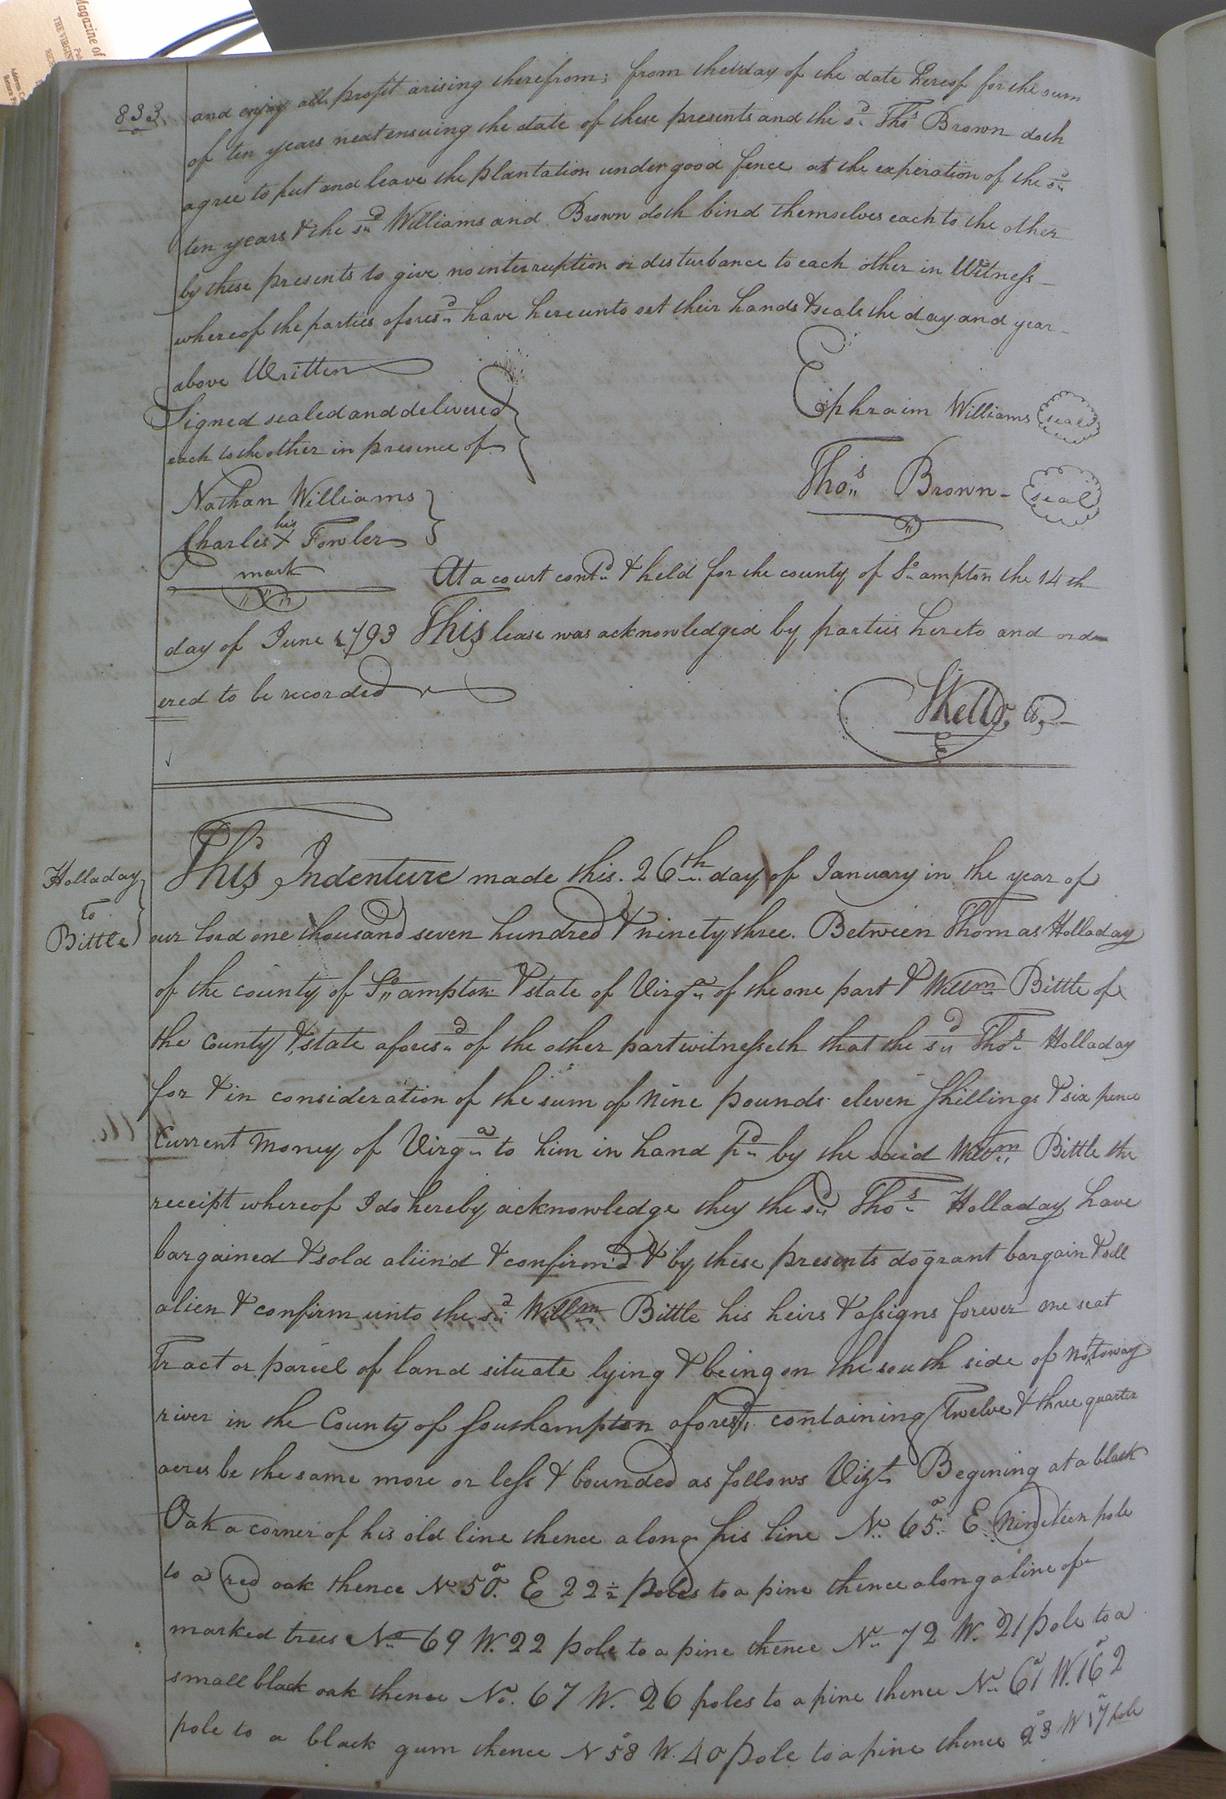 Magazine of
THE VIRGIN
833
and enjoy all profit arising therefrom; from the day of the date hereof for the sum
of ten years next ensuing the date of these presents and the sd. Thos Brown doth
agree to put and leave the plantation under good fence at the experation of the sd.
ten years & the sd. Williams and Brown doth bind themselves each to the other
by these presents to give no interruption or disturbance to each other in Witness
whereof the parties aforesd. have hereunto set their hands & seals the day and year
above Written
Signed sealed and delivered
each to the other in presence of
Ephraim Williams seal
Thos. Brown seal
Nathan Williams
his
Charles X Fowler
mark
At a court contd. & held for the county of So.ampton the 14th
day of June 1793 This lease was acknowledged by parties hereto and ord
ered to be recorded
SKello, Cs.
Holladay
to
Bittle
This Indenture made this 26th day of January in the year of
our lord one thousand seven hundred & ninety three. Between Thomas Holladay
of the county of So.ampton & state of Virga. of the one part & Willm. Bittle of
the County & state aforesd. of the other part witnesseth that the sd. Thos. Holladay
for & in consideration of the sum of nine pounds eleven shillings & six pence
Current money of Virga. to him in hand pd. by the said Willm. Bittle the
receipt whereof I do hereby acknowledge they the sd. Thos. Holladay have
bargained & sold aliind & confirm'd & by these presents do grant bargain & sell
alien & confirm unto the sd. Willm. Bittle his heirs & assigns forever one seat
Tract or parcel of land situate lying & being on the south side of Nottoway
river in the County of Southampton aforesd. containing Twelve & three quarter
acres be the same more or less & bounded as follows Vizt. Begining at a black
Oak a corner of his old line thence along his line No. 65° E. Nineteen pole
to a red oak thence N 50° E 22 1/2 poles to a pine thence along a line of
marked trees No. 69 W. 22 pole to a pine thence No. 72 W. 21 pole to a
small black oak thence No. 67 W. 26 poles to a pine thence No. 61° W. 16° 2
pole to a black gum thence N 58° W. 40 pole to a pine thence 23° W 17 pole